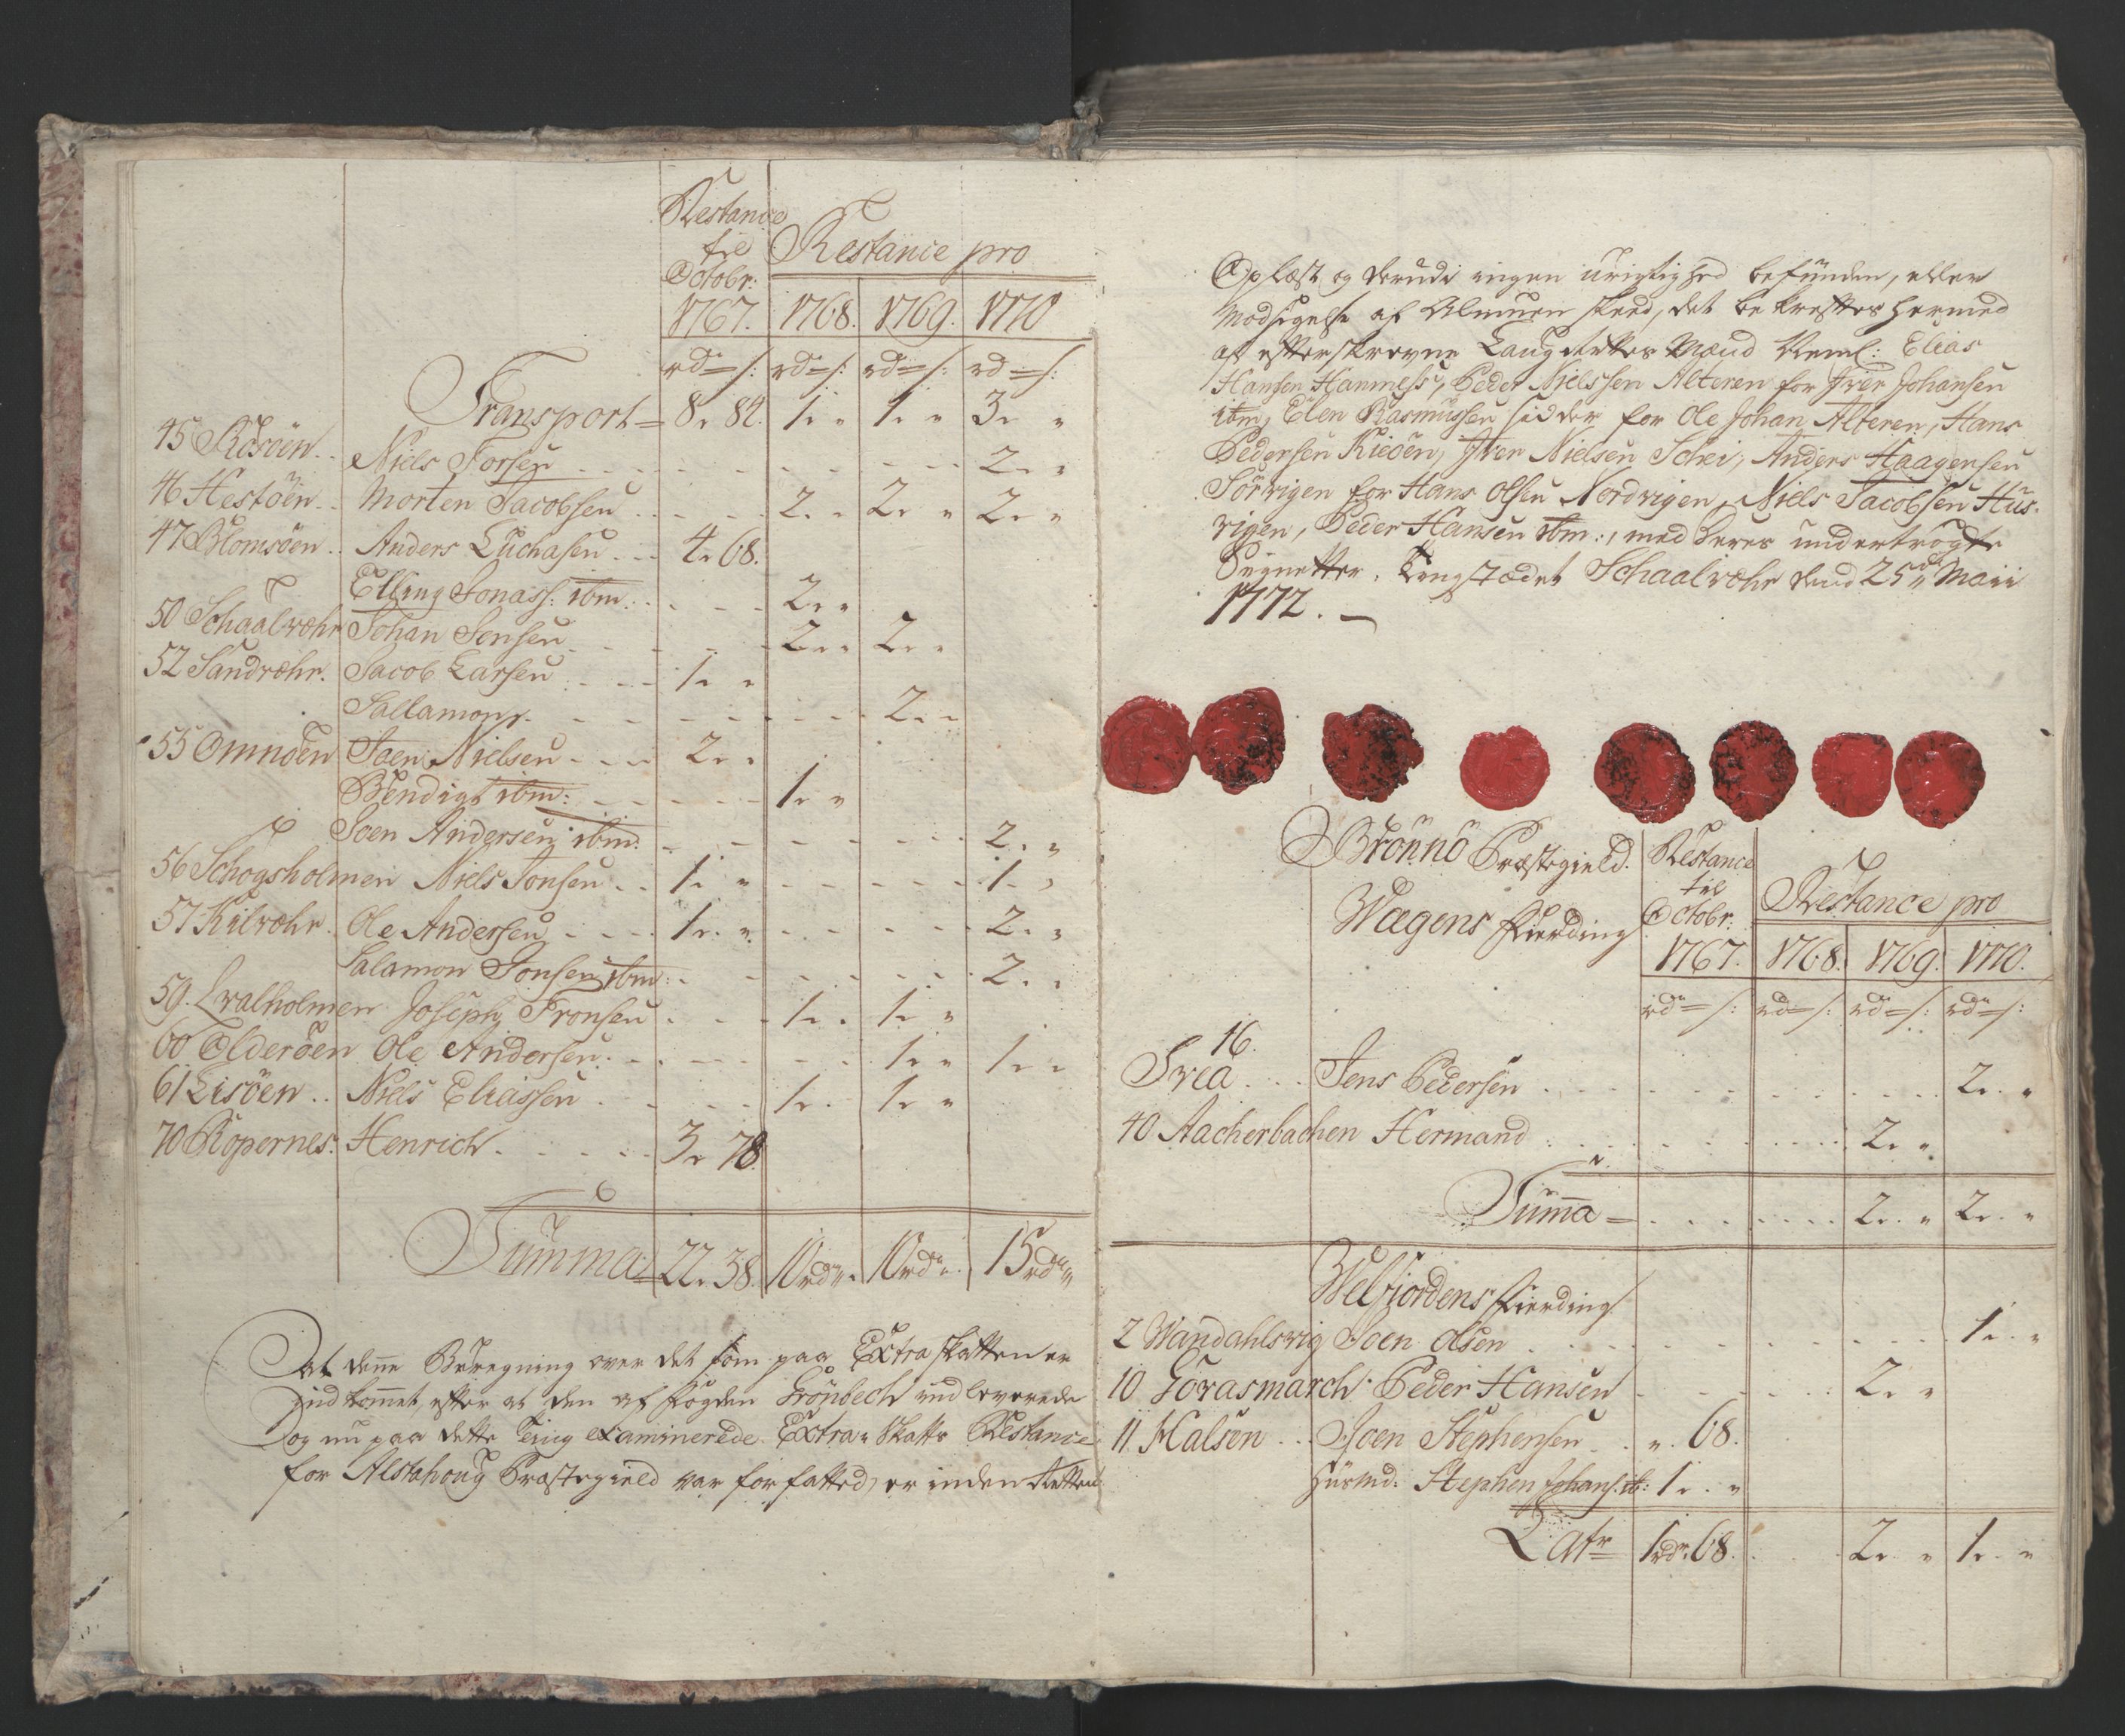 Restance
til
Octobr:
Restance pro
1767. 1768. 1769. 1770
rdr = s: rdr = s: rd = s: rd = s:
Transport = 8 " 84. 1 " " 1 " " 3 " "
45 Rosöen .. Niels Torsen - - - 2 " "
46 Hestöen .. Morten Jacobsen .. 2 " " 2 " " 2 " "
47 Blomsöen .. Anders Luchasen - - 4 " 68.
Elling Jonass: ibm: . . 2 " "
50 Schaalvæhr Johan Jensen - - 2 " " 2 " "
52 Sandvæhr. Jacob Larsen - - - 1 " "
Sallamon - - - 2 " "
55 Omnöen Joen Nielsen - - - 2 " "
Bendigt ibm: - - - 1 " "
Joen Andersen ibm: - - - 2 " "
56 Schogsholmen Niels Jonsen .. 1 " " - - - 1 " "
57 Kilvæhr. Ole Andersen - - - 1 " " - - - 2 " "
Salamon Jonsen ibm: - - - 2 " "
59. Hvalholmen Joseph Tronsen . . . 1 " " 1 " "
60 Olderöen Ole Andersen. - - - 1 " " 1 " "
61 Lisöen .. Niels Eliassen . - - 1 " " 1 " "
70 Kopernes. Henrich - - - 3 " 78.
Summa = 22 " 38. 10 rdr " . 10 rdr " . 15 rdr "
At denne Beregning over det som paa Extraskatten er
indkommet, efter at den af Fogden Grönbech indleverede
og nu paa dette Ting examinerede Extra-Skatts Restance
for Alstahoug Præstegield var forfatted, er inden Retten
Oplæst og derudi ingen urigtighed befunden, eller
Modsigelse af Almuen skeed, det bekreftes hermed
af efterskrevne Laugrettes Mænd Neml: Elias
Hansen Hanness, Peder Nielssen Alteren for Iver Johansen
ibm, Ellen Rasmussen sidder for Ole Johan Alteren, Hans
Pedersen Kieöen, Iver Nielsen Schei, Anders Haagensen
Sörvigen for Hans Olsen Nordvigen, Niels Jacobsen Hus-
vigen, Peder Hansen ibm:, med deres undertrögte
Signetter. Tingstædet Schaalvæhr dend 25de Maii
1772. —
Brönnö Præstegield.
Wægens Fierding
Restance
til
Octobr:
Restance pro
1767. 1768. 1769. 1770.
rdr = s: rd = s: rdr = s: rdr = s:
16.
Svea . . . Jens Pedersen . . . 2 " "
40 Aacherbachen Hermand . . . 2 " "
Summa = . . . 2 " " 2 " "
Welfiordens Fierding
2 Wandahlsvig Joen Olsen . . . 1 " "
10 Gövasmarch: Peder Hansen - - - 2 " "
11. Halsen . . . Joen Stephensen . . " 68.
Huusmd: Stephen Johans: ib: 1 " "
Latr 1 rdr " 68. . . . 2 " " 1 " "